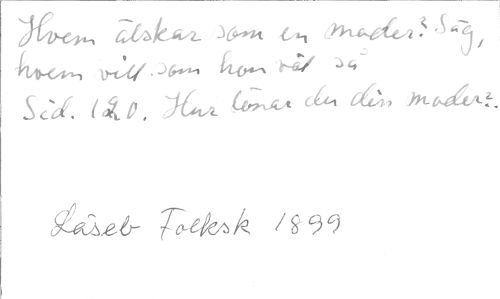 Hvem älskar som en moder? Säg,
hvem vill som hon väl så
Sid. 120. Hur lönar du din moder?.
Läseb Folksk 1899